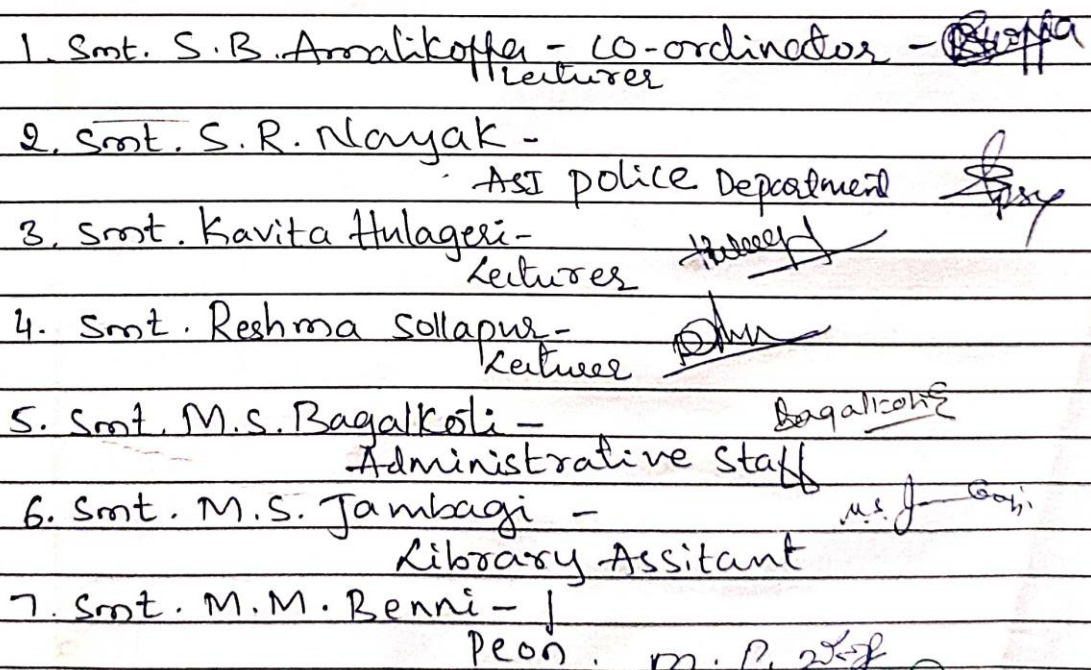 1. Smt. S.B. Amalikoppa - co-ordinator -
Lecturer
2. Smt. S.R. Nayak -
ASI police Department
3. Smt. Kavita Hulageri-
Lecturer
4. Smt. Reshma Sollapur-
Lecturer
5. Smt. M.S. Bagalkoti - Bagalkoti
Administrative Staff
6. Smt. M.S. Jambagi - M.S.
Library Assitant
7. Smt. M.M. Benni -
Peon.